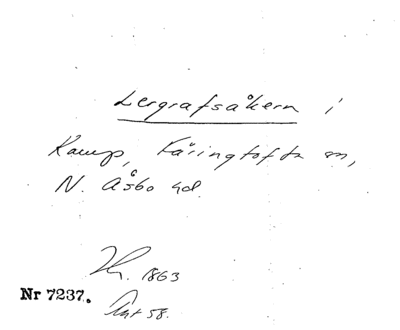 Lergrafsåkern i
Kamp, Färingtofta sn,
N. Åsbo hd.
Nr 7237.
Hn. 1863
Akt 58.